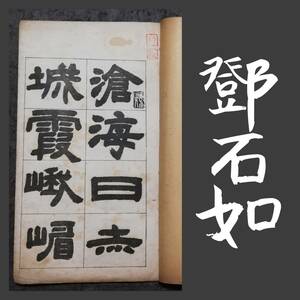 鄧石如
滄海日赤
城霞峨嵋